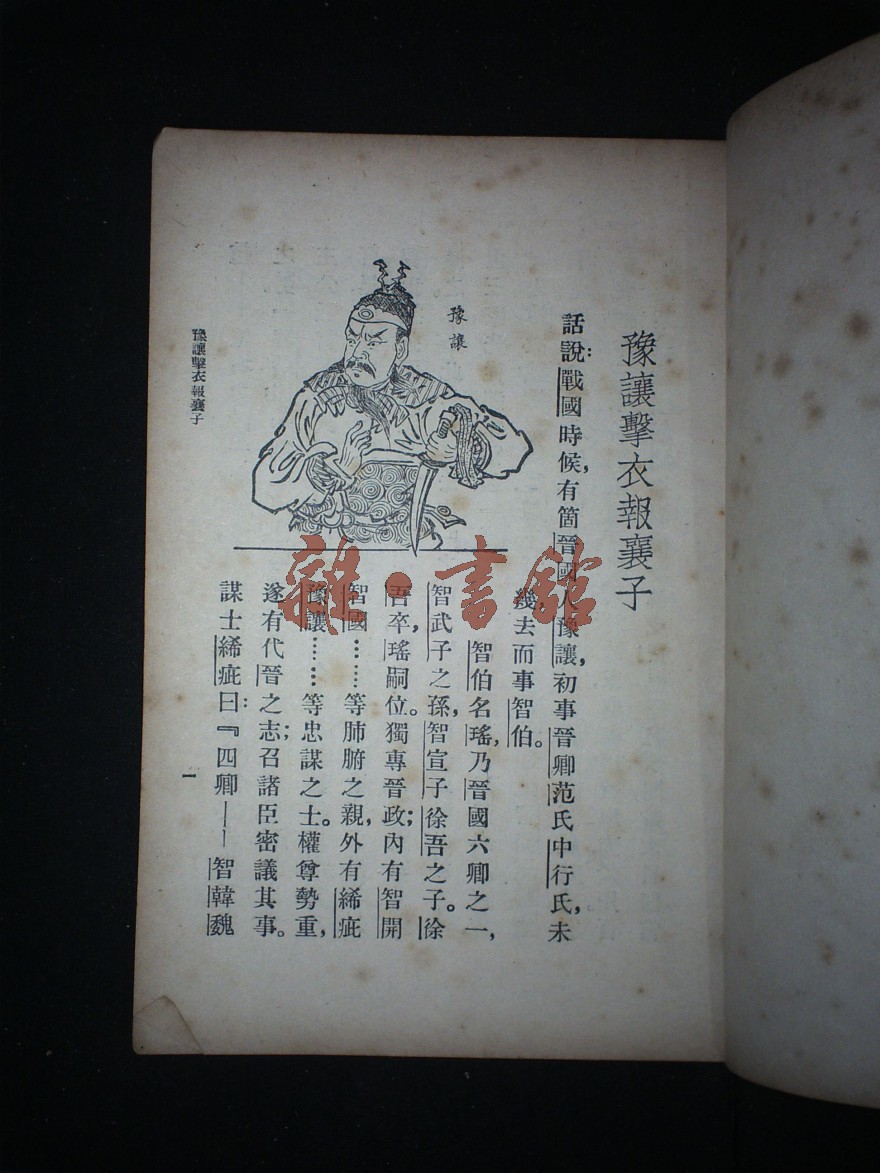 豫讓擊衣報襄子
話說：戰國時候，有箇晉國人豫讓，初事晉卿范氏中行氏，未
幾去而事智伯。
智伯名瑤，乃晉國六卿之一，
智武子之孫，智宣子徐吾之子。徐
吾卒，瑤嗣位。獨專晉政；內有智開
智國……等肺腑之親，外有絺疵
豫讓……等忠謀之士。權尊勢重，
遂有代晉之志；召諸臣密議其事。
謀士絺疵曰：『四卿——智韓魏
豫讓
豫讓擊衣報襄子
一
雜·書館